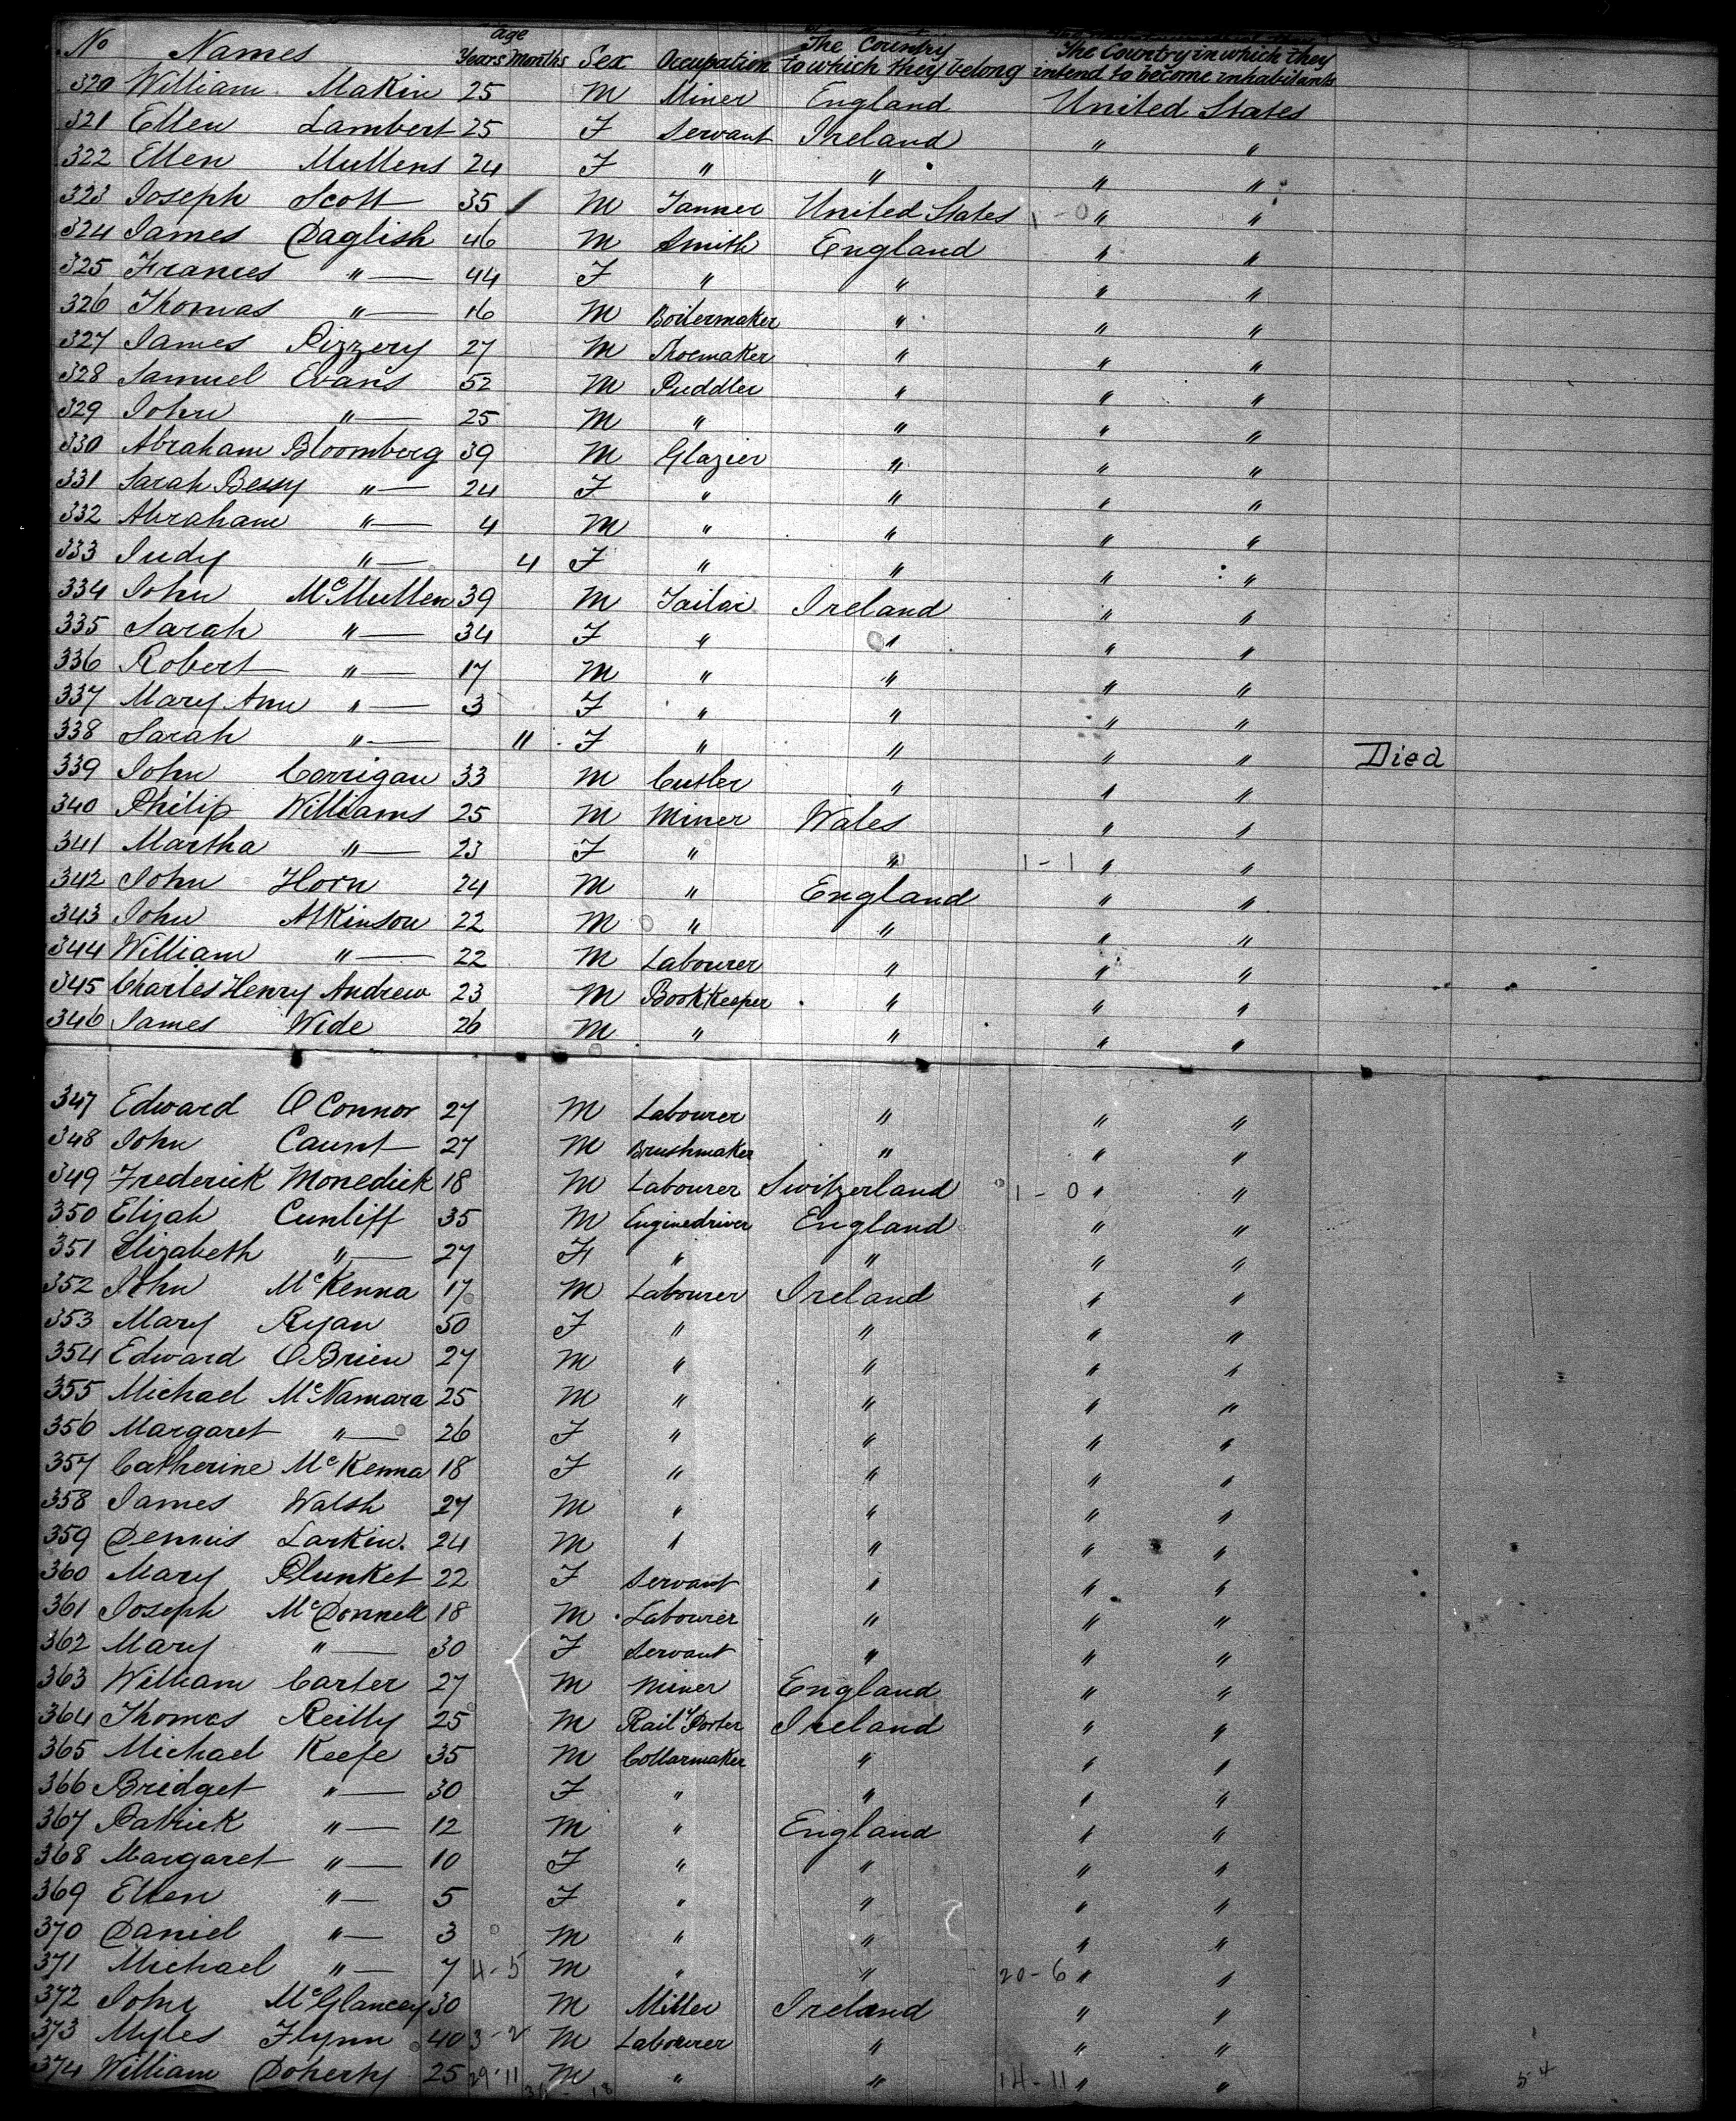 No Names Age Years Months Sex Occupation The Country to which they belong The Country in which they intend to become inhabitants
320 William Makin 25 M Miner England United States
321 Ellen Lambert 25 F Servant Ireland " "
322 Ellen Mullens 24 F " " " "
323 Joseph Scott 35 M Tanner United States 1-0 " "
324 James Daglish 46 M Smith England " "
325 Frances " 44 F " " " "
326 Thomas " 16 M Boilermaker " " "
327 James Pizzery 27 M Shoemaker " " "
328 Samuel Evans 52 M Puddler " " "
329 John " 25 M " " " "
330 Abraham Bloomberg 39 M Glazier " " "
331 Sarah Bessy " 24 F " " " "
332 Abraham " 4 M " " " "
333 Judy " 4 F " " " "
334 John McMullen 39 M Tailor Ireland " "
335 Sarah " 34 F " " " "
336 Robert " 17 M " " " "
337 Mary Ann " 3 F " " " "
338 Sarah " 11 F " " " " Died
339 John Corrigan 33 M Cutler " " "
340 Philip Williams 25 M Miner Wales " "
341 Martha " 23 F " " 1-1 " "
342 John Horn 24 M " England " "
343 John Atkinson 22 M " " " "
344 William " 22 M Labourer " " "
345 Charles Henry Andrew 23 M BookKeeper " " "
346 James Wide 26 M " " " "
347 Edward O'Connor 27 M Labourer " " "
348 John Caunt 27 M Brushmaker " " "
349 Frederick Monedick 18 M Labourer Switzerland 1-0 " "
350 Elijah Cunliff 35 M Enginedriver England " "
351 Elizabeth " 27 F " " " "
352 John McKenna 17 M Labourer Ireland " "
353 Mary Ryan 50 F " " " "
354 Edward O'Brien 27 M " " " "
355 Michael McNamara 25 M " " " "
356 Margaret " 26 F " " " "
357 Catherine McKenna 18 F " " " "
358 James Walsh 27 M " " " "
359 Dennis Larkin 24 M " " " "
360 Mary Plunket 22 F Servant " " "
361 Joseph McDonnell 18 M Labourer " " "
362 Mary " 30 F Servant " " "
363 William Carter 27 M Miner England " "
364 Thomas Reilly 25 M Raily Porter Ireland " "
365 Michael Keefe 35 M Collarmaker " " "
366 Bridget " 30 F " " " "
367 Patrick " 12 M " England " "
368 Margaret " 10 F " " " "
369 Ellen " 5 F " " " "
370 Daniel " 3 M " " " "
371 Michael " 7 4-5 M " " 20-6 " "
372 John McGlancey 30 M Miller Ireland " "
373 Myles Flynn 40 3-2 M Labourer " " "
374 William Doherty 25 29-11 M " " 14-11 " " 54